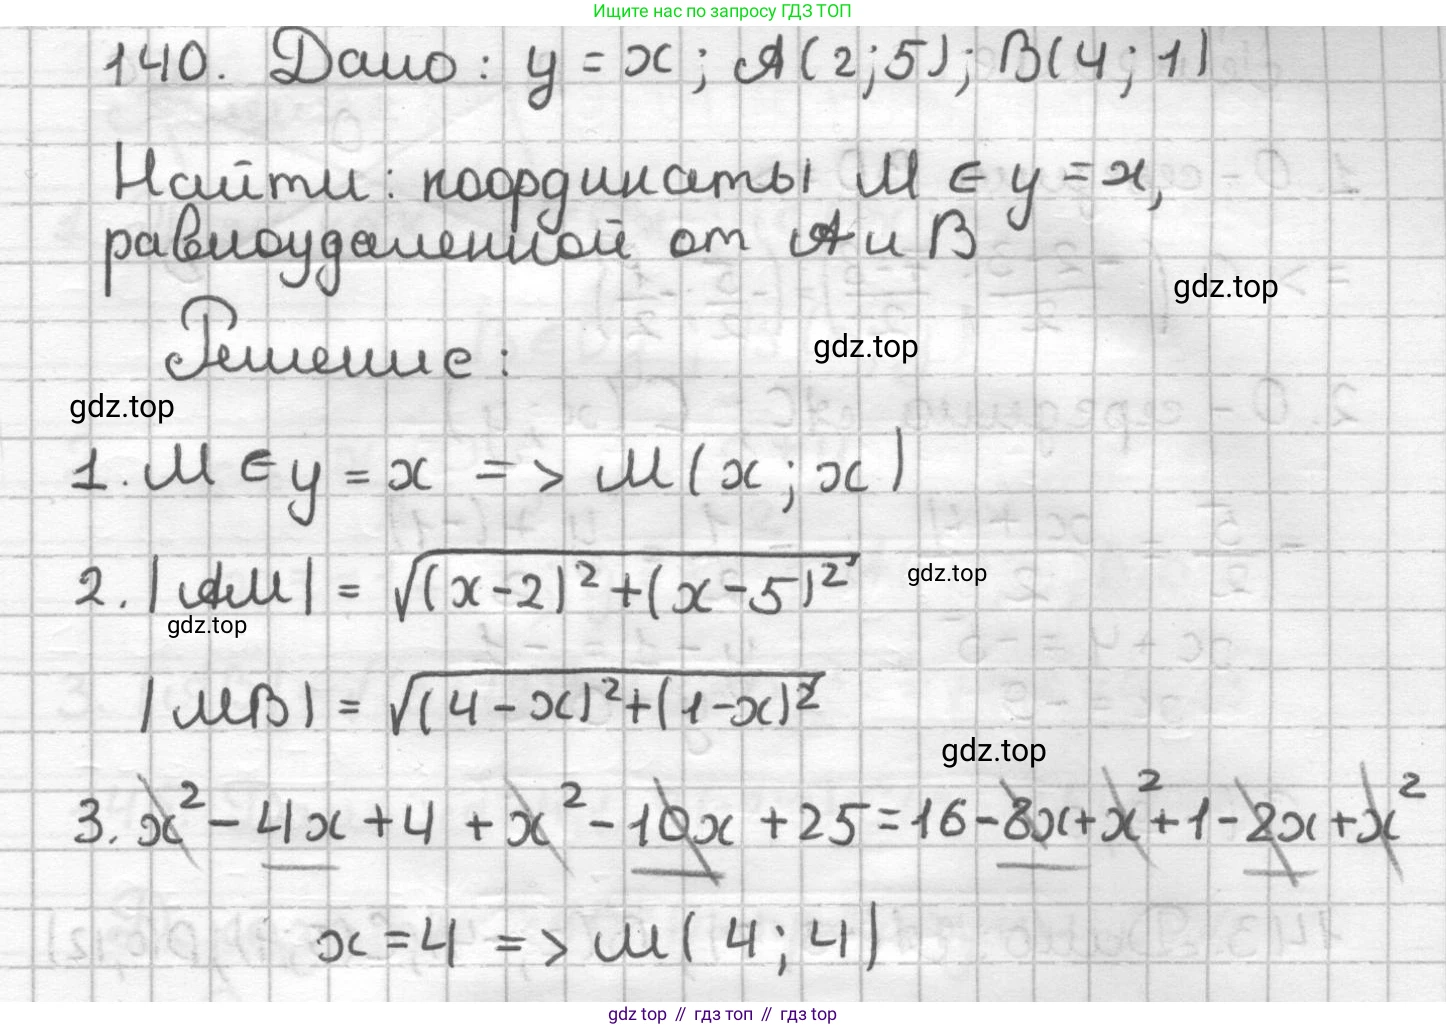 Ищите нас по запросу ГДЗ ТОП
140. Дано: y = x; A(2;5); B(4; 1)
Найти: координаты M ∈ y = x,
равноудаленной от A и B
gdz.top
Решение:
gdz.top
gdz.top
1. M ∈ y = x => M(x; x)
2. |AM| = √((x-2)²+(x-5)²)
gdz.top
gdz.top
|MB| = √((4-x)²+(1-x)²)
gdz.top
3. x² - 4x + 4 + x² - 10x + 25 = 16 - 8x + x² + 1 - 2x + x²
x = 4 => M(4; 4)
gdz top // гдз топ // gdz top